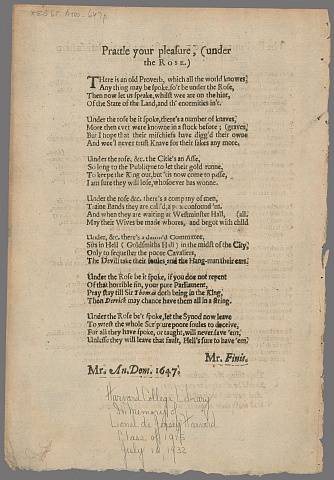 Prattle your pleasure, (under
the ROSE.)
THere is an old Proverb, which all the world knowes,
Any thing may be spoke, so't be under the Rose,
Then now let us speake, whilst wee are on the hint,
Of the State of the Land, and th' enormities in't.
Under the rose be it spoke, there's a number of knaves,
More then ever were knowne in a stock before; (graves,
But I hope that their mischiefs have digg'd their owne
And wee'l never trust Knave for their sakes any more.
Under the rose, &c. the Citie's an Asse,
So long to the Publique to let their gold runne,
To keepe the King out, but 'tis now come to passe,
I am sure they will lose, whosoever has wonne.
Under the rose &c. there's a company of men,
Traine Bands they are call'd, a pox confound 'm.
And when they are waiting at Westminster Hall, (all.
May their Wives be made whores, and begot with child
Under, &c. there's a damn'd Committee,
Sits in Hell (Goldsmiths Hall) in the midst of the City,
Only to sequester the poore Cavaliers,
The Devill take their soules, and the Hang-man their ears.
Under the Rose be it spoke, if you doe not repent
Of that horrible sin, your pure Parliament,
Pray stay till Sir Thomas doth bring in the King,
Then Derrick may chance have them all in a string.
Under the Rose be't spoke, let the Synod now leave
To wrest the whole Scripture poore soules to deceive,
For all they have spoke, or taught, will never save 'em,
Unlesse they will leave that fault, Hell's sure to have 'em.
Mr. Finis.
Mr. An. Dom. 1647.
Harvard College Library
In Memory of
Lionel de Jersey Harvard
Class of 1915
July 1932